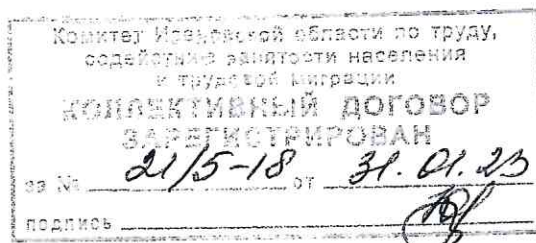 Комитет Ивановской области по труду,
содействию занятости населения
и трудовой миграции
КОЛЛЕКТИВНЫЙ ДОГОВОР
ЗАРЕГИСТРИРОВАН
за № 21/5-18 от 31.01.23
подпись